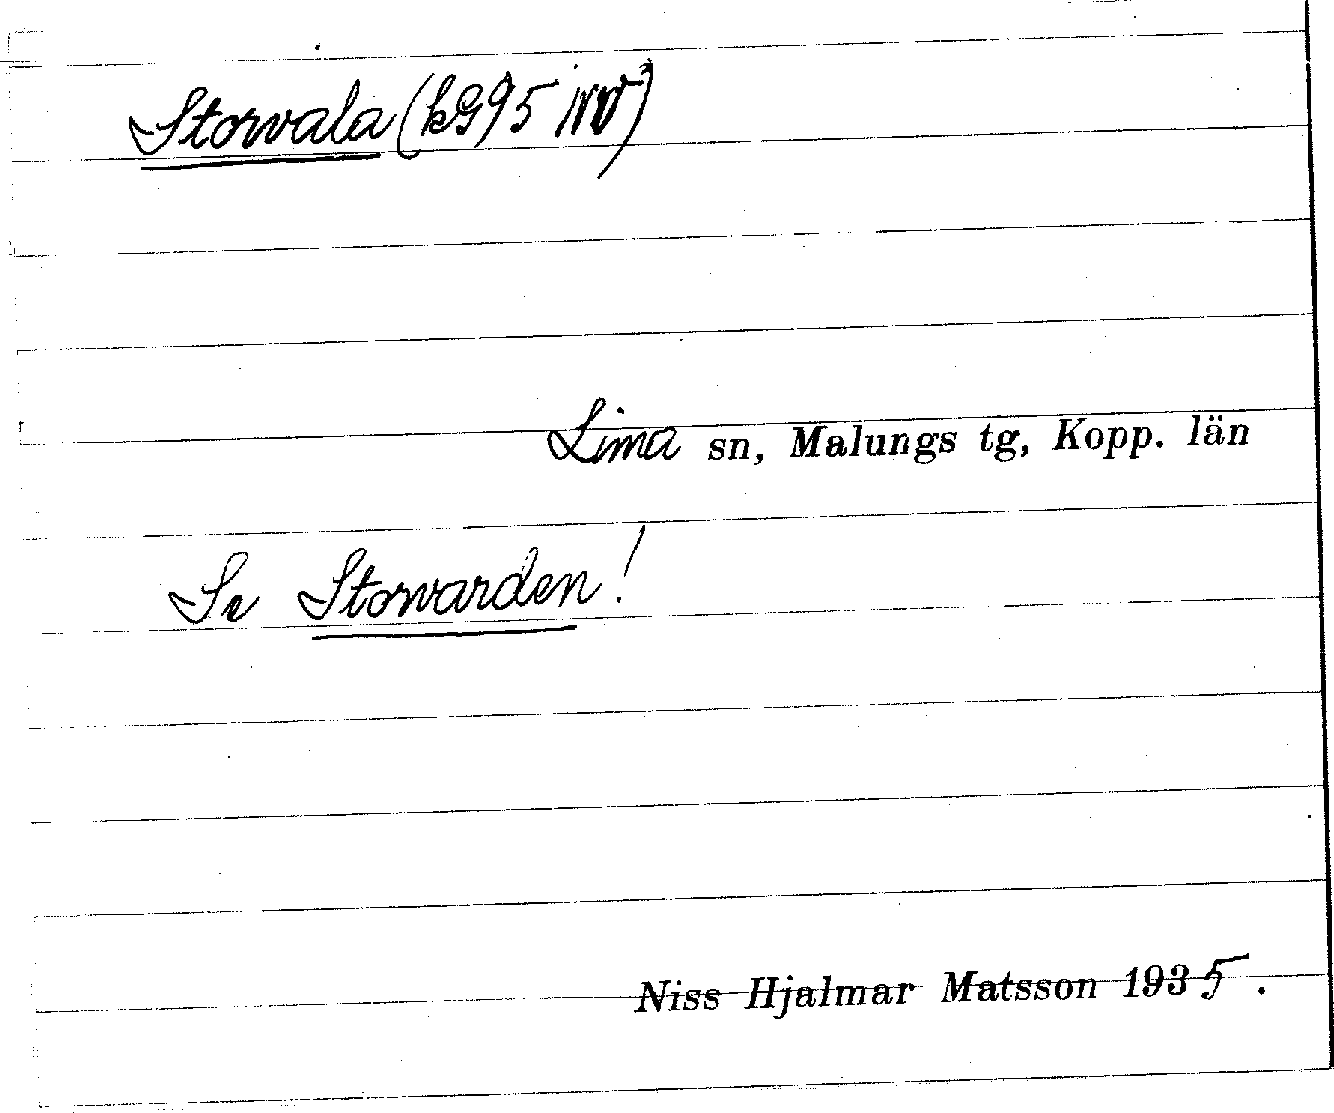 Storvala (kG95 NV)
Lima sn, Malungs tg, Kopp. län
Se Storvarden!
Niss Hjalmar Matsson 1935.